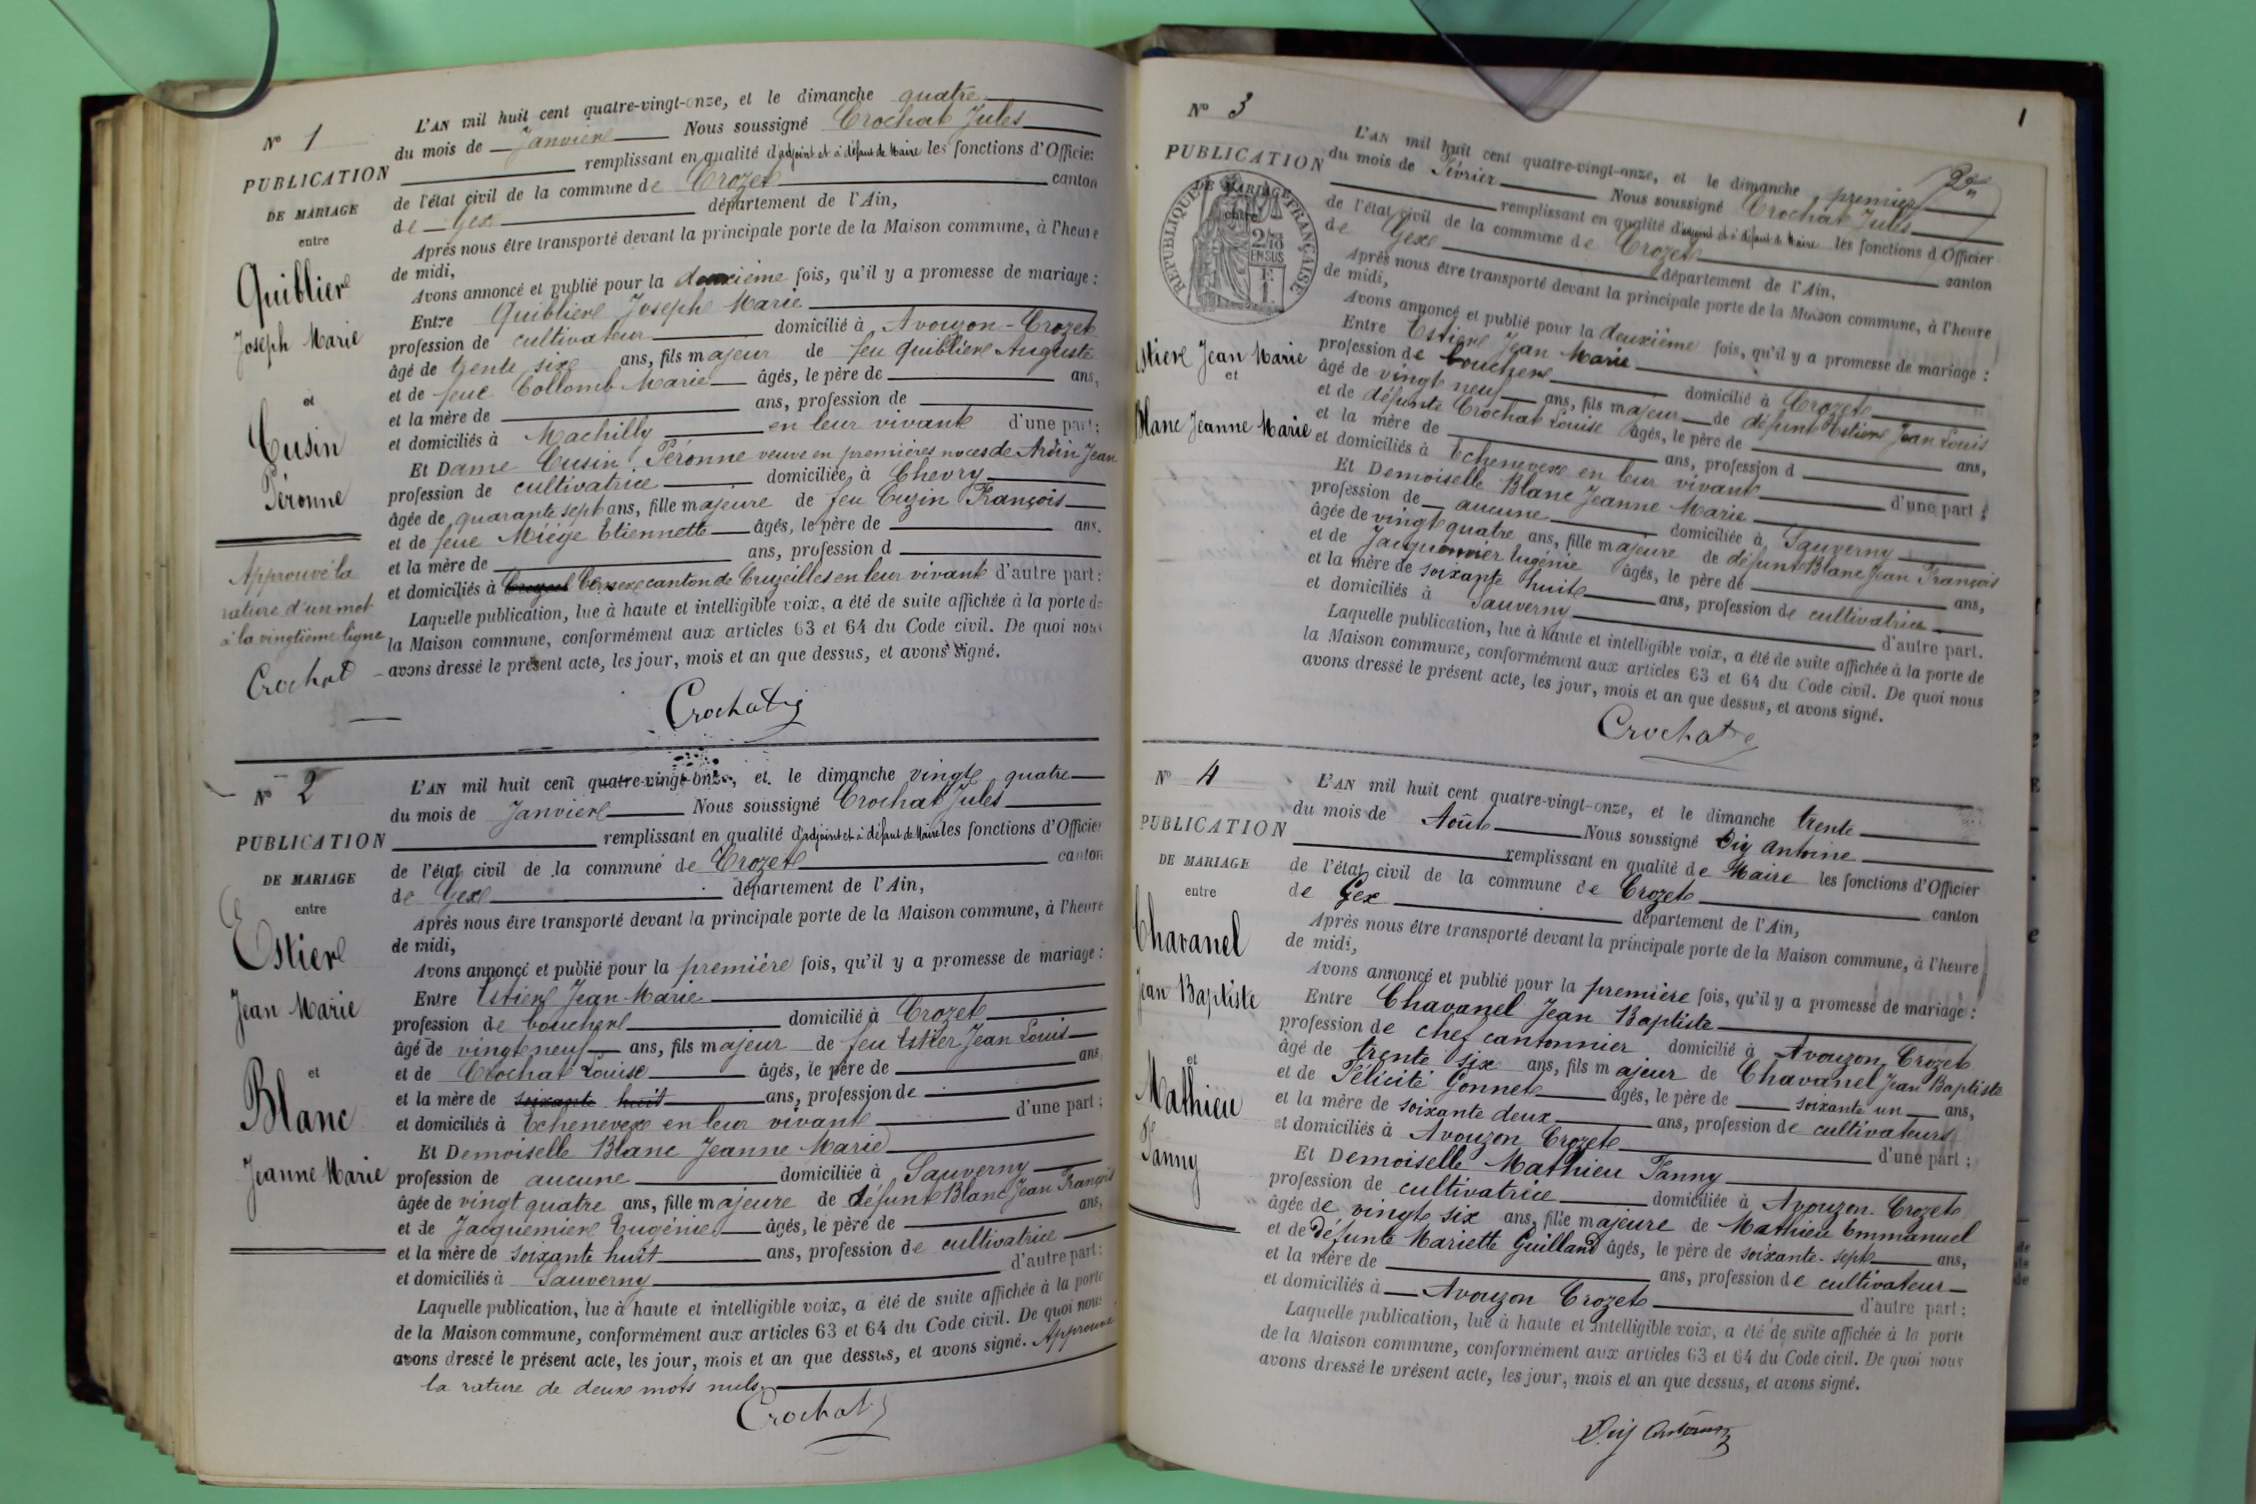 N° 1
PUBLICATION
DE MARIAGE
entre
Quiblier
Joseph Marie
et
Cusin
Péronne
Approuvé la
rature d'un mot
à la vingtième ligne
Crochat
L'AN mil huit cent quatre-vingt-onze, et le dimanche quatre
du mois de Janvier Nous soussigné Crochat Jules
remplissant en qualité d'adjoint et à défaut de Maire les fonctions d'Officier
de l'état civil de la commune de Crozet canton
de Gex département de l'Ain,
Après nous être transporté devant la principale porte de la Maison commune, à l'heure
de midi,
Avons annoncé et publié pour la deuxième fois, qu'il y a promesse de mariage :
Entre Quiblier Joseph Marie
profession de cultivateur domicilié à Avouzon-Crozet
âgé de trente six ans, fils majeur de feu Quiblier Auguste
et de feue Collomb Marie âgés, le père de ans,
et la mère de ans, profession de
et domiciliés à Machilly en leur vivant d'une part ;
Et Dame Cusin Péronne veuve en premières noces de Ardin Jean
profession de cultivatrice domiciliée à Chevry
âgée de quarante sept ans, fille majeure de feu Cuzin François
et de feue Miége Etiennette âgés, le père de ans.
et la mère de ans, profession d
et domiciliés à canton de Cruzeilles en leur vivant d'autre part :
Laquelle publication, lue à haute et intelligible voix, a été de suite affichée à la porte de
la Maison commune, conformément aux articles 63 et 64 du Code civil. De quoi nous
avons dressé le présent acte, les jour, mois et an que dessus, et avons signé.
Crochat
N° 2
PUBLICATION
DE MARIAGE
entre
Estier
Jean Marie
et
Blanc
Jeanne Marie
L'AN mil huit cent quatre-vingt-onze, et le dimanche vingt quatre
du mois de Janvier Nous soussigné Crochat Jules
remplissant en qualité d'adjoint et à défaut de Maire les fonctions d'Officier
de l'état civil de la commune de Crozet canton
de Gex département de l'Ain,
Après nous être transporté devant la principale porte de la Maison commune, à l'heure
de midi,
Avons annoncé et publié pour la première fois, qu'il y a promesse de mariage :
Entre Estier Jean Marie
profession de boucher domicilié à Crozet
âgé de vingt neuf ans, fils majeur de feu Estier Jean Louis
et de Crochat Louise âgés, le père de ans
et la mère de soixante huit ans, profession de
et domiciliés à Echenevex en leur vivant d'une part ;
Et Demoiselle Blanc Jeanne Marie
profession de aucune domiciliée à Sauverny
âgée de vingt quatre ans, fille majeure de défunt Blanc Jean François
et de Jacquemier Eugénie âgés, le père de ans,
et la mère de soixante huit ans, profession de cultivatrice
et domiciliés à Sauverny d'autre part ;
Laquelle publication, lue à haute et intelligible voix, a été de suite affichée à la porte
de la Maison commune, conformément aux articles 63 et 64 du Code civil. De quoi nous
avons dressé le présent acte, les jour, mois et an que dessus, et avons signé. Approuvé
la rature de deux mots nuls.
Crochat
1
N° 3
PUBLICATION
DE MARIAGE
entre
RÉPUBLIQUE FRANÇAISE
2/10 EN SUS
Estier Jean Marie
et
Blanc Jeanne Marie
L'AN mil huit cent quatre-vingt-onze, et le dimanche premier
du mois de Février Nous soussigné Crochat Jules
remplissant en qualité d'adjoint et à défaut de Maire les fonctions d'Officier
de l'état civil de la commune de Crozet canton
de Gex département de l'Ain,
Après nous être transporté devant la principale porte de la Maison commune, à l'heure
de midi,
Avons annoncé et publié pour la deuxième fois, qu'il y a promesse de mariage :
Entre Estier Jean Marie
profession de boucher domicilié à Crozet
âgé de vingt neuf ans, fils majeur de défunt Estier Jean Louis
et de défunte Crochat Louise âgés, le père de ans,
et la mère de ans, profession d
et domiciliés à Echenevex en leur vivant d'une part ;
Et Demoiselle Blanc Jeanne Marie
profession de aucune domiciliée à Sauverny
âgée de vingt quatre ans, fille majeure de défunt Blanc Jean François
et de Jacquemier Eugénie âgés, le père de ans,
et la mère de soixante huit ans, profession de cultivatrice
et domiciliés à Sauverny d'autre part.
Laquelle publication, lue à haute et intelligible voix, a été de suite affichée à la porte de
la Maison commune, conformément aux articles 63 et 64 du Code civil. De quoi nous
avons dressé le présent acte, les jour, mois et an que dessus, et avons signé.
Crochat
N° 4
PUBLICATION
DE MARIAGE
entre
Chavanel
Jean Baptiste
et
Mathieu
Fanny
L'AN mil huit cent quatre-vingt-onze, et le dimanche trente
du mois de Août Nous soussigné Antoine
remplissant en qualité de Maire les fonctions d'Officier
de l'état civil de la commune de Crozet canton
de Gex département de l'Ain,
Après nous être transporté devant la principale porte de la Maison commune, à l'heure
de midi,
Avons annoncé et publié pour la première fois, qu'il y a promesse de mariage :
Entre Chavanel Jean Baptiste
profession de chef cantonnier domicilié à Avouzon, Crozet
âgé de trente six ans, fils majeur de Chavanel Jean Baptiste
et de Félicité Gonnet âgés, le père de soixante un ans,
et la mère de soixante deux ans, profession de cultivateurs
et domiciliés à Avouzon Crozet d'une part ;
Et Demoiselle Mathieu Fanny
profession de cultivatrice domiciliée à Avouzon-Crozet
âgée de vingt six ans, fille majeure de Mathieu Emmanuel
et de défunte Mariette Guilland âgés, le père de soixante-sept ans,
et la mère de ans, profession de cultivateur
et domiciliés à Avouzon Crozet d'autre part ;
Laquelle publication, lue à haute et intelligible voix, a été de suite affichée à la porte
de la Maison commune, conformément aux articles 63 et 64 du Code civil. De quoi nous
avons dressé le présent acte, les jour, mois et an que dessus, et avons signé.
Antoine